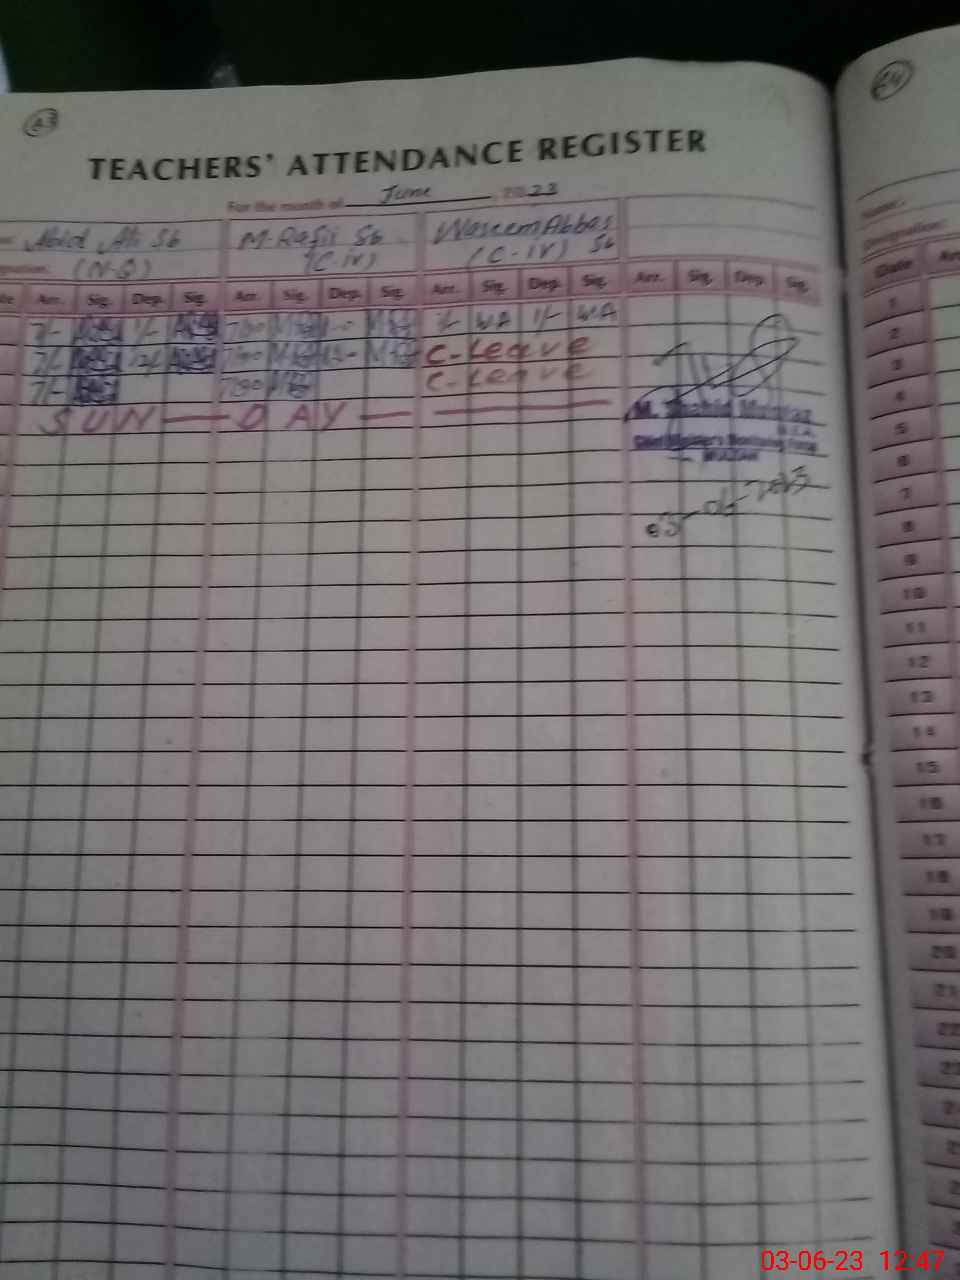 23
24
TEACHERS' ATTENDANCE REGISTER
For the month of June 2023
Abid Ali Sb M. Rafii Sb Waseem Abbas Sb
(N-Q) (C-IV) (C-IV)
Arr. Sig. Dep. Sig. Arr. Sig. Dep. Sig. Arr. Sig. Dep. Sig. Arr. Sig. Dep. Sig.
7/- 1/- 7/00 1-0 7/- WA 1/- WA
7/- 12/- 7/00 C-Leave
7/- 7/00 C-Leave
SUN — DAY —
M. Shahid Mumtaz
M.E.A.
Chief Minister's Monitoring Force
MULTAN
03-06-2023
Name:
Designation:
Date Arr
1
2
3
4
5
6
7
8
9
10
11
12
13
14
15
16
17
18
19
20
21
22
03-06-23 12:47